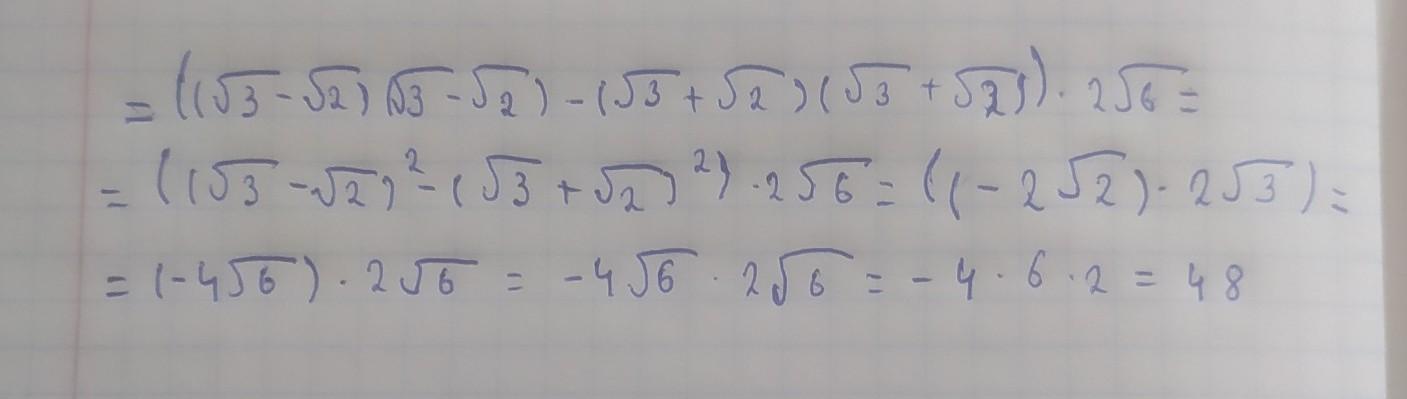 = ((√3 - √2) (√3 - √2) - (√3 + √2) (√3 + √2)) · 2√6 =
= ((√3 - √2)² - (√3 + √2)²) · 2√6 = ((-2√2) · 2√3) =
= (-4√6) · 2√6 = -4√6 · 2√6 = -4 · 6 · 2 = 48